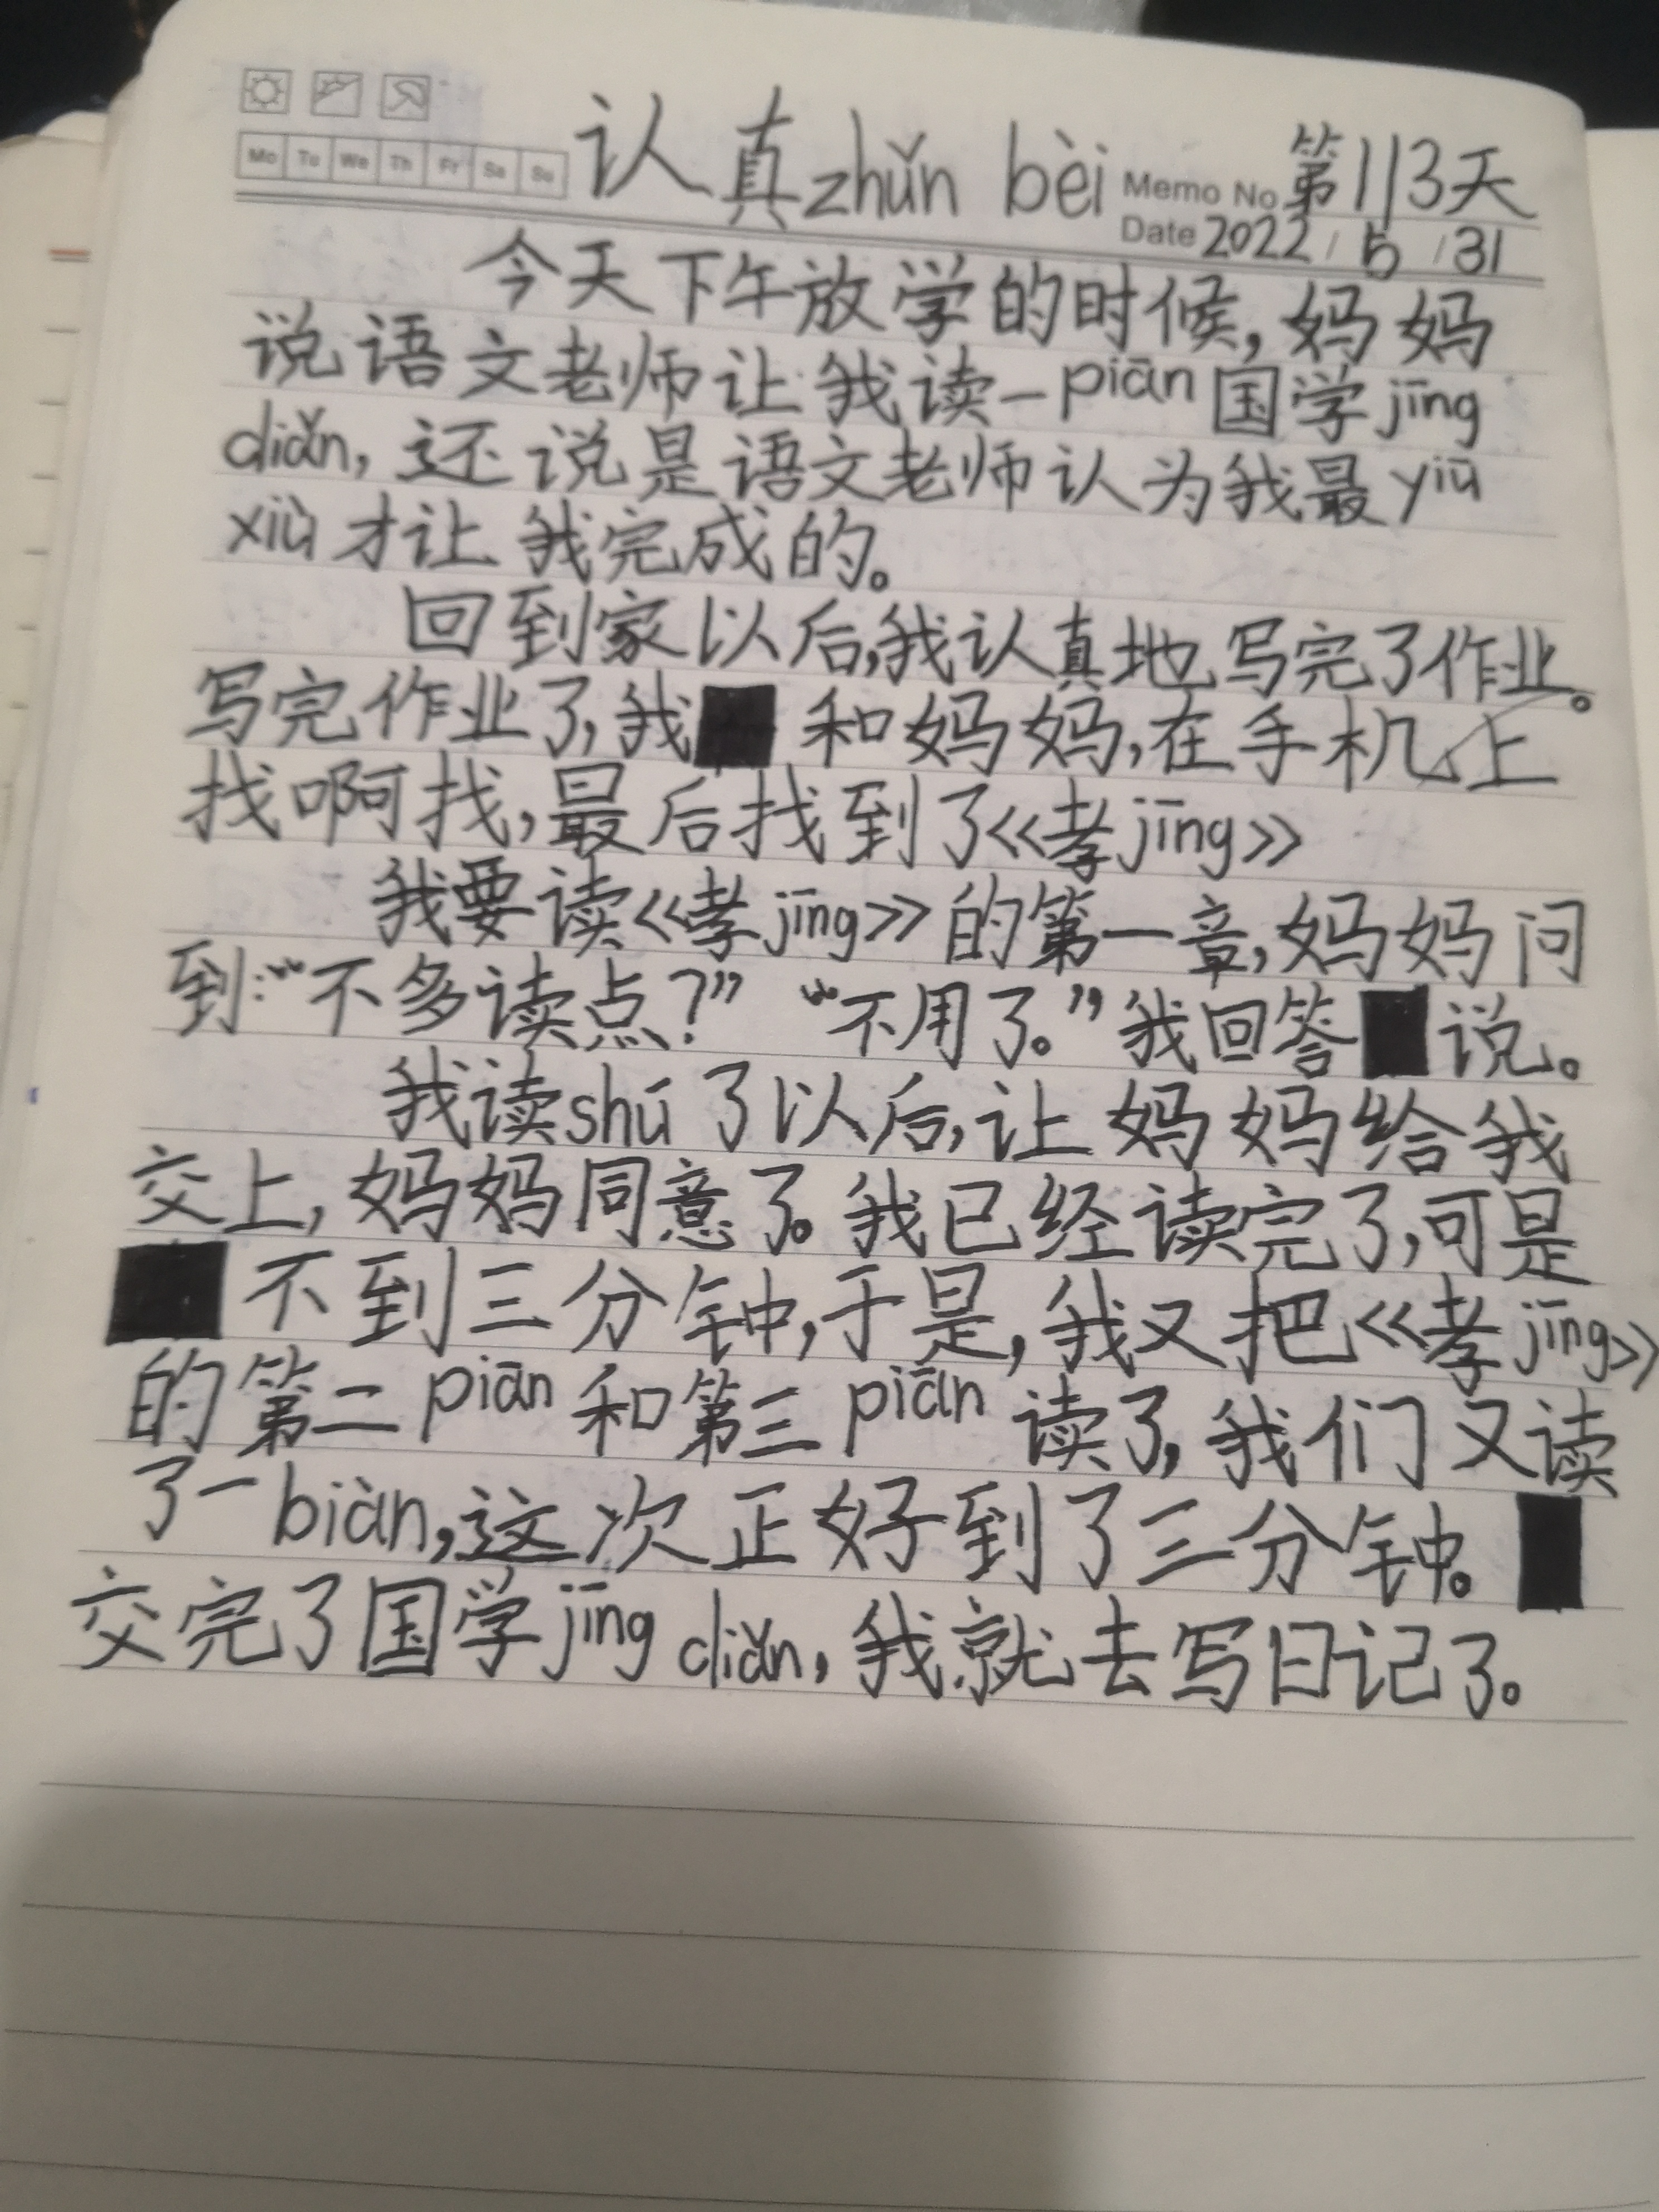 Mo Tu We Th Fr Sa Su
认真zhǔn bèi
Memo No. 第113天
Date 2022 / 5 / 31
今天下午放学的时候,妈妈
说语文老师让我读一piān国学jīng
diǎn,还说是语文老师认为我最yiū
xiù才让我完成的。
回到家以后,我认真地写完了作业。
写完作业了,我和妈妈,在手机上
找啊找,最后找到了《孝jīng》
我要读《孝jīng》的第一章,妈妈问
到:“不多读点?” “不用了。”我回答说。
我读shú了以后,让妈妈给我
交上,妈妈同意了。我已经读完了,可是
不到三分钟,于是,我又把《孝jīng》
的第二piān和第三piān读了,我们又读
了一biàn,这次正好到了三分钟。
交完了国学jīng diǎn,我就去写日记了。